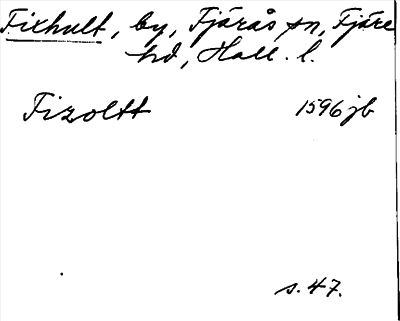 Fixhult, by, Fjärås sn, Fjäre
hd, Hall. l.
Fizoltt 1596 jb
s. 47.